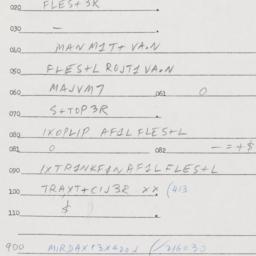 020 FLES+ 3R
030 —
040 MANM1T+ VA.N
050 FLES+L ROJT1 VA.N
060 MAJVM7 061 0
070 S+TOP3R
080 IXOPLIP AF1L FLES+L
081 0 082 - = + $
090 IXTRINKFUN AF1L FLES+L
100 TRAXT+CIJ3R XX (413
110 $
900